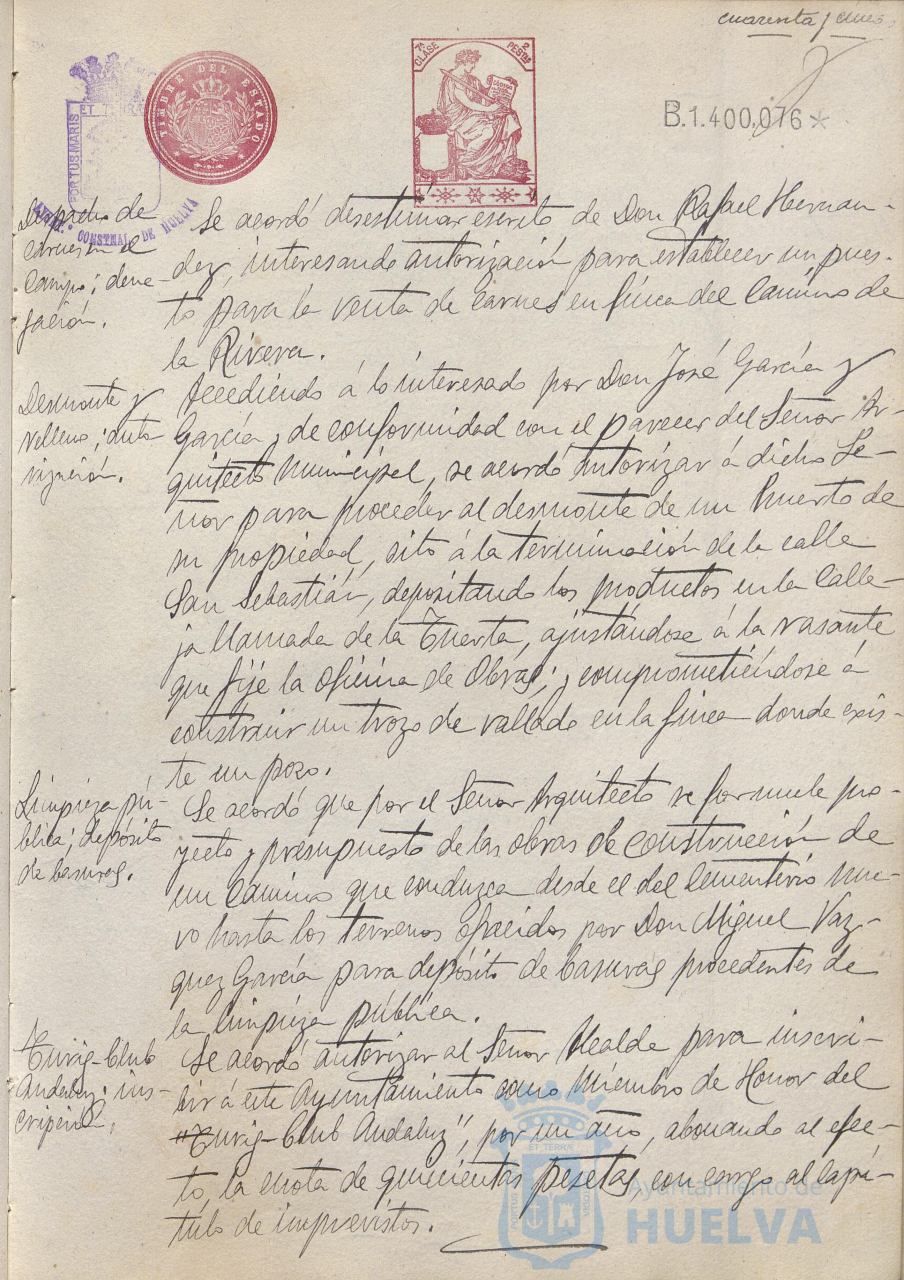 cuarenta y cinco
TIMBRE DEL ESTADO
7ª CLASE 2 PESTAS
B.1.400,076*
PORTUS MARIS
ET
AYUNT. CONSTNAL. DE HUELVA
Despacho de
carnes en el
Campo; dene-
gación.
Se acordó desestimar escrito de Don Rafael Hernan-
dez, interesando autorización para establecer un pues-
to para la venta de carnes en finca del Camino de
la Rivera.
Desmonte y
relleno; auto-
rización.
Accediendo á lo interesado por Don José García y
García, de conformidad con el parecer del Señor Ar-
quitecto Municipal, se acordó autorizar a dicho Se-
ñor para proceder al desmonte de un Huerto de
su propiedad, sito á la terminación de la calle
San Sebastián, depositando los productos en la Calle-
ja llamada de la Tuerta, ajustándose á la rasante
que fije la Oficina de Obras; y comprometiéndose á
construir un trozo de vallado en la finca donde exis-
te un pozo.
Limpieza pú-
blica; depósito
de basuras.
Se acordó que por el Señor Arquitecto se formule pro-
yecto y presupuesto de las obras de construcción de
un Camino que conduzca desde el del Cementerio Nue-
vo hasta los terrenos ofrecidos por Don Miguel Vaz-
quez García para depósito de basuras procedentes de
la limpieza pública.
Turig-Club
Andaluz; ins-
cripción.
Se acordó autorizar al Señor Alcalde para inscri-
bir á este Ayuntamiento como Miembro de Honor del
"Turig-Club Andaluz", por un año, abonando al efec-
to, la cuota de quinientas pesetas, con cargo al Capí-
tulo de imprevistos.
Ayuntamiento de
HUELVA